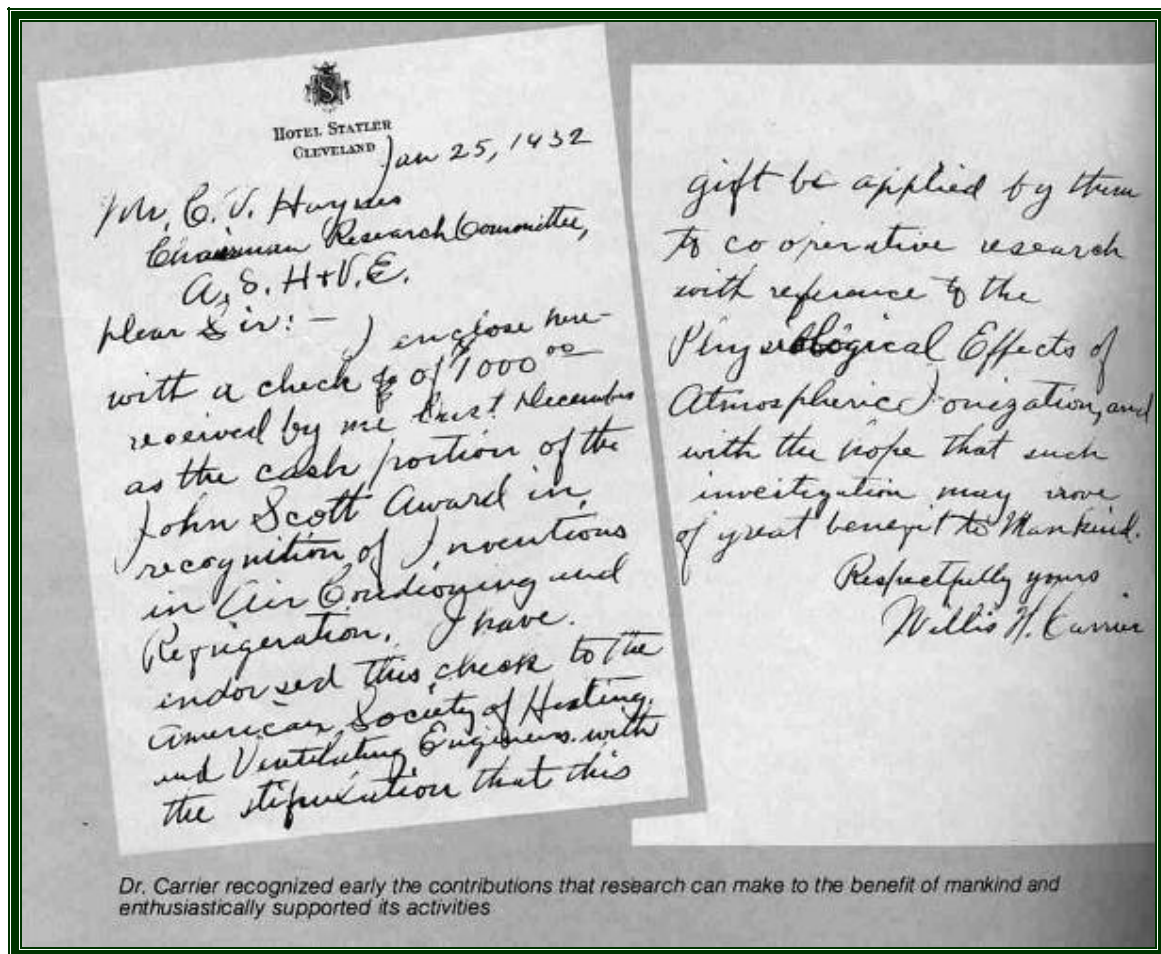 HOTEL STATLER
CLEVELAND
Jan 25, 1932
Mr. C. V. Haynes
Chairman Research Committee,
A. S. H + V. E.
Dear Sir: —
I enclose here-
with a check of 1000 00
received by me last December
as the cash portion of the
John Scott Award in
recognition of Inventions
in Air Condioning and
Refrigeration. I have
endorsed this check to the
American Society of Heating
and Ventilating Engineers with
the stipulation that this
gift be applied by them
to cooperative research
with reference to the
Physiological Effects of
Atmospheric Ionization, and
with the hope that such
investigation may prove
of great benefit to Mankind.
Respectfully yours
Willis H. Carrier
Dr. Carrier recognized early the contributions that research can make to the benefit of mankind and
enthusiastically supported its activities